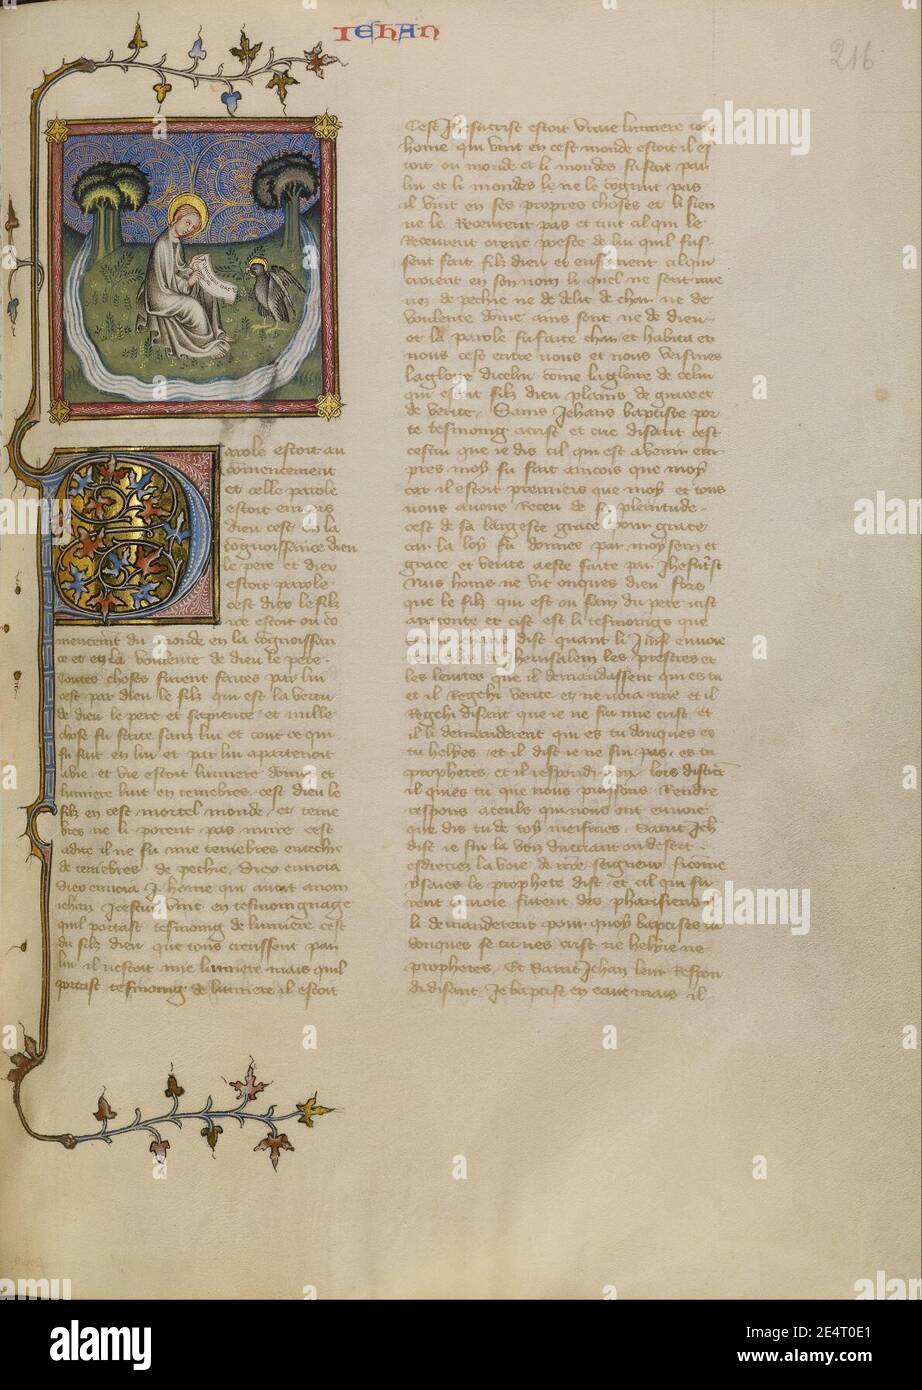 IEHAN
216
parole estoit au
comencement
et celle parole
estoit
dieu cest en la
cognoissance dieu
le pere et diex
estoit parole
cest diex le filz
ice estoit ou co
mencemt du monde en la cognoissan
ce et en la voulente de dieu le pere.
Toutes choses furent faites par lui
cest par dieu le filz qui est la vertu
de dieu le pere et sapience et nulle
chose fu faite sans lui et tout ce qui
fu fait en lui et par lui apartenoit
a vie et vie estoit lumiere domes et
lumiere luit en tenebres cest dieu le
filz en cest mortel monde et tene
bres ne li porent pas nuire cest
adire il ne fu mie tenebres
de tenebres de pechie. diex envoia
diex envoia J. home qui avoit a nom
iehan Icestui vint en tesmoingnage
quil portast tesmoing de lumiere cest
du filz dieu que tous creussent par
lui il nestoit mie lumiere mais quil
portast tesmoing de lumiere il estoit
Cest Jhesucrist estoit vraie lumiere
home qui vint en cest monde estoit il es
toit ou monde et li mondes fu fait par
lui et li mondes le ne le cognut pas
il vint en ses propres choses et li sien
ne le Receurent pas et tuit cil qui le
Receurent orent poeste de lui quil fus
sent fait filz dieu et ensement cil qui
croient en son nom li quel ne sont mie
nez de pechie ne de delit de char ne de
voulente dome ains sont ne de dieu
et la parole fu faite char et habita en
nous cest entre nous et nous veismes
la gloire dicelui come la gloire de celui
qui estoit filz dieu plains de grace et
de verite. Sains Jehans baptiste por
te tesmoing a crist et crie disant cest
cestui que ie dis cil qui est a venir em
pres moy fu fait aincois que moy
car il estoit premiers que moy et tous
nous avons Receu de sa plentude
cest de sa largesce grace pour grace
car la loy fu donnee par moysen et
grace et verite a este faite par Jhesucrist
Nus homs ne vit onques dieu fors
que le filz qui est ou sain du pere cist
a raconte et cist est li tesmoings que
saint iehans dist quant li Juif envoie
rent de Jherusalem les prestres et
les levites que il demandassent qui es tu
et il Regehi verite et ne noia mie et il
Regehi disant que ie ne sui mie crist et
il li demanderent qui es tu donques es
tu helyes et il dist ie ne sui pas. es tu
prophetes et il respondi non. lors distrent
il qui es tu que nous puissons Rendre
respons a ceuls qui nous ont envoie
que dis tu de toy meismes. Saint Jeh
dist ie sui la voiz du criant ou desert
esdreciez la voie de nostre seigneur sicome
ysaies le prophete dist et cil qui fu
rent envoie furent des pharisiens
li demanderent pour quoy baptises tu
donques se tu nes crist ne helyie ne
prophetes. Et Saint Jehan leur Respon
di disant. Je baptise en eaue mais il
alamy
Image ID: 2E4T0E1
www.alamy.com